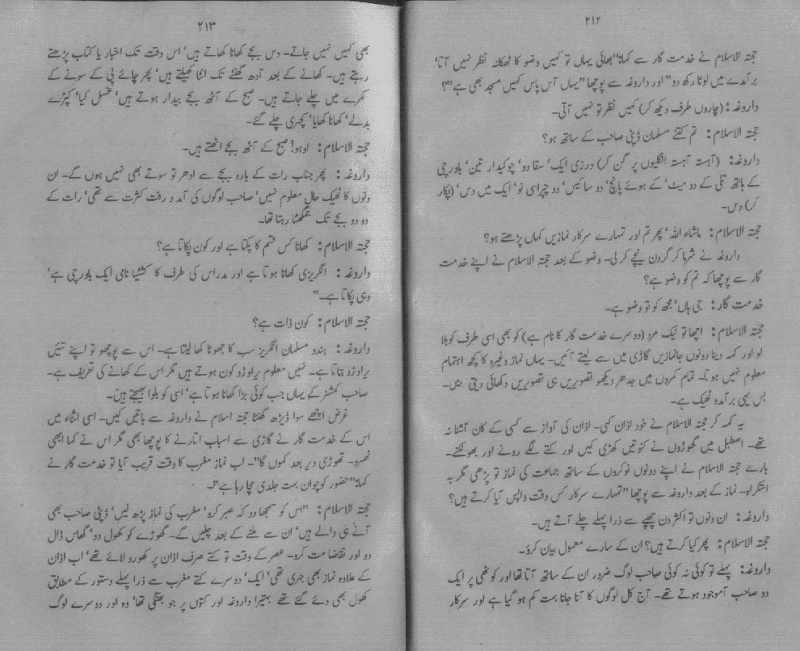 ۲۱۲
حجتہ الاسلام نے خدمت گار سے کہا: "بھائی یہاں تو کہیں وضو کا ٹھکانہ نظر نہیں آتا'
برآمدے میں لوٹا رکھ دو" اور داروغہ سے پوچھا "یہاں آس پاس کہیں مسجد بھی ہے"؟
داروغہ: (چاروں طرف دیکھ کر) کہیں نظر تو نہیں آتی۔
حجتہ الاسلام: تم کتنے مسلمان ڈپٹی صاحب کے ساتھ ہو؟
داروغہ: (آہستہ آہستہ انگلیوں پر گن کر) درزی ایک' سقا دو' چوکیدار تین' باورچی
کے ہاتھ تلی کے دو میٹ' کے ہوئے پانچ' دو سائیس' دو چپراسی نو' ایک میں دس' (پکار
کر) دس۔
حجتہ الاسلام: ماشاء اللہ' پھر تم اور تمہارے سرکار نمازیں کہاں پڑھتے ہو؟
داروغہ نے شرما کر گردن نیچے کر لی۔ وضو کے بعد حجتہ الاسلام نے اپنے خدمت
گار سے پوچھا کہ تم کو وضو ہے؟
خدمت گار: جی ہاں' مجھ کو تو وضو ہے۔
حجتہ الاسلام: اچھا تو نیک مرد (دوسرے خدمت گار کا نام ہے) کو بھی اسی طرف کو بلا
لو اور کہہ دینا دونوں جانمازیں گاڑی میں سے لیتے آئیں۔ یہاں نماز وغیرہ کا کچھ اہتمام
معلوم نہیں ہوتا۔ تمام کمروں میں جدھر دیکھو تصویریں ہی تصویریں دکھائی دیتی ہیں۔
بس یہی برآمدہ ٹھیک ہے۔
یہ کہہ کر حجتہ الاسلام نے خود اذان کہی۔ اذان کی آواز سے کسی کے کان آشنا نہ
تھے۔ اصطبل میں گھوڑوں نے کنوتیں کھڑی کیں اور کتے لگے رونے اور بھونکنے۔
بارے حجتہ الاسلام نے اپنے دونوں نوکروں کے ساتھ جماعت کی نماز تو پڑھی مگر بہ
استکراہ۔ نماز کے بعد داروغہ سے پوچھا "تمہارے سرکار کس وقت واپس آیا کرتے ہیں؟
داروغہ: ان دنوں تو اکثر دن چھپے سے ذرا پہلے چلے آتے ہیں۔
حجتہ الاسلام: پھر کیا کرتے ہیں؟ ان کے سارے معمول بیان کرو۔
داروغہ: پہلے تو کوئی نہ کوئی صاحب لوگ ضرور ان کے ساتھ آتا تھا اور کوٹھی پر ایک
دو صاحب آموجود ہوتے تھے۔ آج کل لوگوں کا آنا جانا بہت کم ہو گیا ہے اور سرکار
۲۱۳
بھی کہیں نہیں جاتے۔ دس بجے کھانا کھاتے ہیں' اس وقت تک اخبار یا کتاب پڑھتے
رہتے ہیں۔ کھانے کے بعد آدھ گھنٹے تک انٹا کھیلتے ہیں' پھر چائے پی کے سونے کے
کمرے میں چلے جاتے ہیں۔ صبح کے آٹھ بجے بیدار ہوتے ہیں' غسل کیا' کپڑے
بدلے' کھانا کھایا' کچہری چلے گئے۔
حجتہ الاسلام: اوہو! صبح کے آٹھ بجے اٹھتے ہیں۔
داروغہ: پھر جناب رات کے بارہ بجے سے ادھر تو سوتے بھی نہیں ہوں گے۔ ان
دنوں کا ٹھیک حال معلوم نہیں' صاحب لوگوں کی آمد و رفت کثرت سے تھی' رات کے
دو دو بجے تک جمگھٹا رہتا تھا۔
حجتہ الاسلام: کھانا کس قسم کا پکتا ہے اور کون پکاتا ہے؟
داروغہ: انگریزی کھانا ہوتا ہے اور مدراس کی طرف کا کشٹیا نامی ایک باورچی ہے'
وہی پکاتا ہے۔"
حجتہ الاسلام: کون ذات ہے؟
داروغہ: ہندو مسلمان انگریز سب کا جھوٹا کھا لیتا ہے۔ اس سے پوچھو تو اپنے تئیں
براوڑو بتاتا ہے۔ نہیں معلوم براوڑو کون ہوتے ہیں مگر اس کے کھانے کی تعریف ہے۔
صاحب کمشنر کے یہاں جب کوئی بڑا کھانا ہوتا ہے' اسی کو بلوا بھیجتے ہیں۔
غرض اچھے سوا ڈیڑھ گھنٹا حجتہ اسلام نے داروغہ سے باتیں کیں۔ اسی اثناء میں
اس کے خدمت گار نے گاڑی سے اسباب اتارنے کا پوچھا بھی مگر اس نے کہا ابھی
ٹھہرو۔ تھوڑی دیر بعد کہوں گا"۔ اب نماز مغرب کا وقت قریب آیا تو خدمت گار نے
کہا: "حضور کوچوان بہت جلدی مچا رہا ہے"۔
حجتہ الاسلام: "اس کو سمجھا دو کہ صبر کرو' مغرب کی نماز پڑھ لیں' ڈپٹی صاحب بھی
آنے ہی والے ہیں' ان سے ملنے کے بعد چلیں گے۔ گھوڑے کو کھول دو' گھاس ڈال
دو اور تقاضا مت کرو۔ عصر کے وقت تو کتے صرف اذان پر کھورو لائے تھے' اب اذان
کے علاوہ نماز بھی جہری تھی' ایک' دوسرے کتے مغرب سے ذرا پہلے دستور کے مطابق
کھول بھی دئے گئے تھے بہتیرا داروغہ اور کتوں پر جو بھنگی تھا' وہ اور دوسرے لوگ